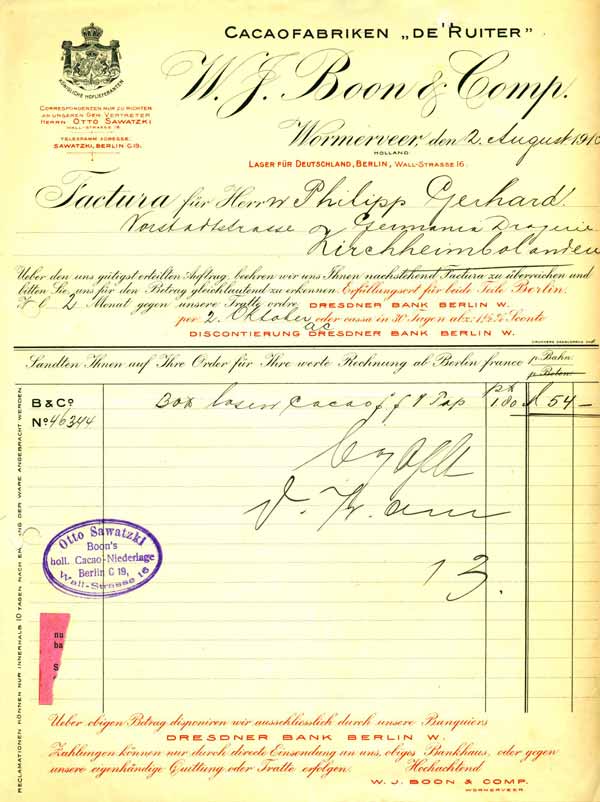 CACAOFABRIKEN „DE RUITER”
W. J. Boon & Comp.
KÖNIGLICHE HOFLIEFERANTEN
CORRESPONDENZEN NUR ZU RICHTEN
AN UNSEREN GEN. VERTRETER
HERRN OTTO SAWATZKI
WALL-STRASSE 16
TELEGRAMM ADRESSE:
SAWATZKI, BERLIN C.19.
Wormerveer, den 2. August 1910
HOLLAND
LAGER FÜR DEUTSCHLAND, BERLIN, WALL-STRASSE 16.
Factura für Herrn Philipp Gerhard
Vorstadtstrasse Germania Drogerie
Kirchheimbolanden
Ueber den uns gütigst erteilten Auftrag, beehren wir uns Ihnen nachstehend Factura zu überreichen und
bitten Sie uns für den Betrag gleichlautend zu erkennen. Erfüllungsort für beide Teile Berlin.
2 Monat gegen unsere Tratte ordre DRESDNER BANK BERLIN W.
per 2. Oktober oder cassa in 30 Tagen abz: 1½% Sconto
DISCONTIERUNG DRESDNER BANK BERLIN W.
Sandten Ihnen auf Ihre Order für Ihre werte Rechnung ab Berlin franco p. Bahn.
p. Boten.
B & Co Box losen Cacao ff 1 Pap 180 54 —
No. 46344
13.
Otto Sawatzki
Boon's
holl. Cacao-Niederlage
Berlin C 19,
Wall-Strasse 16
nu
ba
S
RECLAMATIONEN KÖNNEN NUR INNERHALB 10 TAGEN NACH EMPFANG DER WARE ANGEBRACHT WERDEN
Ueber obigen Betrag disponiren wir ausschliesslich durch unsere Banquiers
DRESDNER BANK BERLIN W.
Zahlungen können nur durch directe Einsendung an uns, obiges Bankhaus, oder gegen
unsere eigenhändige Quittung oder Tratte erfolgen. Hochachtend
W. J. BOON & COMP.
WORMERVEER